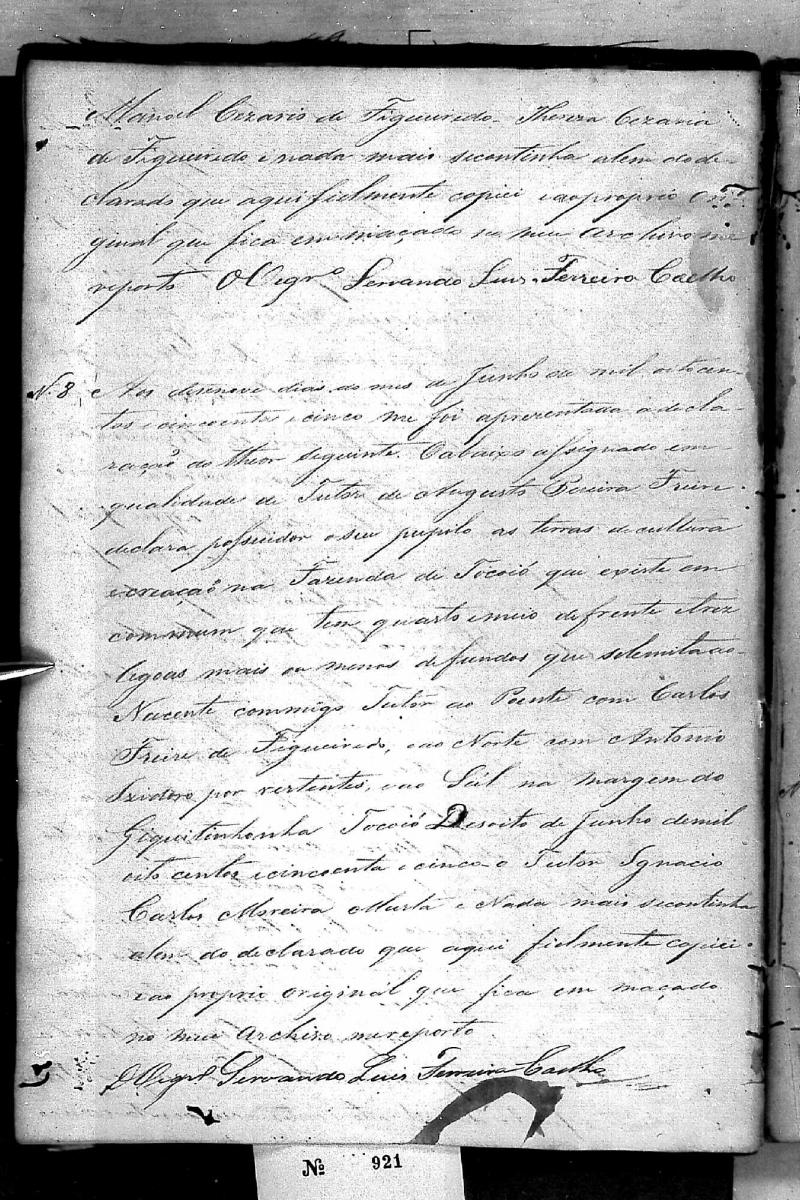 Manoel Cezario de Figueiredo. Thereza Cezaria
de Figueiredo e nada mais secontinha alem dode-
clarado que aqui fielmente copiei eaoproprio Ori
ginal que fica em maçado no meu Archivo me
reporto O Vigrº Servando Luis Ferreira Coelho
N. 8 Aos desenove dias do mes de Junho de mil oitocen-
tos e cincoenta e cinco me foi aprezentada a decla-
ração do theor seguinte. O abaixo assignado em
qualidade de Tutor de Augusto Pereira Freire
declara possuidor o seu pupilo as terras de cultura
e creação na Fazenda de Tocoió que existe em
commum que tem quarto emeio defrente etrez
legoas mais ou menos defundos que selemita ao
Nacente commigo Tutor ao Poente com Carlos
Freire de Figueiredo, eao Norte com Antonio
Izidoro por vertentes, eao Sul na margem do
Giquitinhonha Tocoió Desoito de Junho demil
oito centos ecincoenta e cinco o Tutor Ignacio
Carlos Moreira Murta e Nada mais secontinha
alem do declarado que aqui fielmente copiei
eao proprio original que fica em maçado
no meu Archivo mereporto
O Vigrº Servando Luis Ferreira Coelho
Nº 921